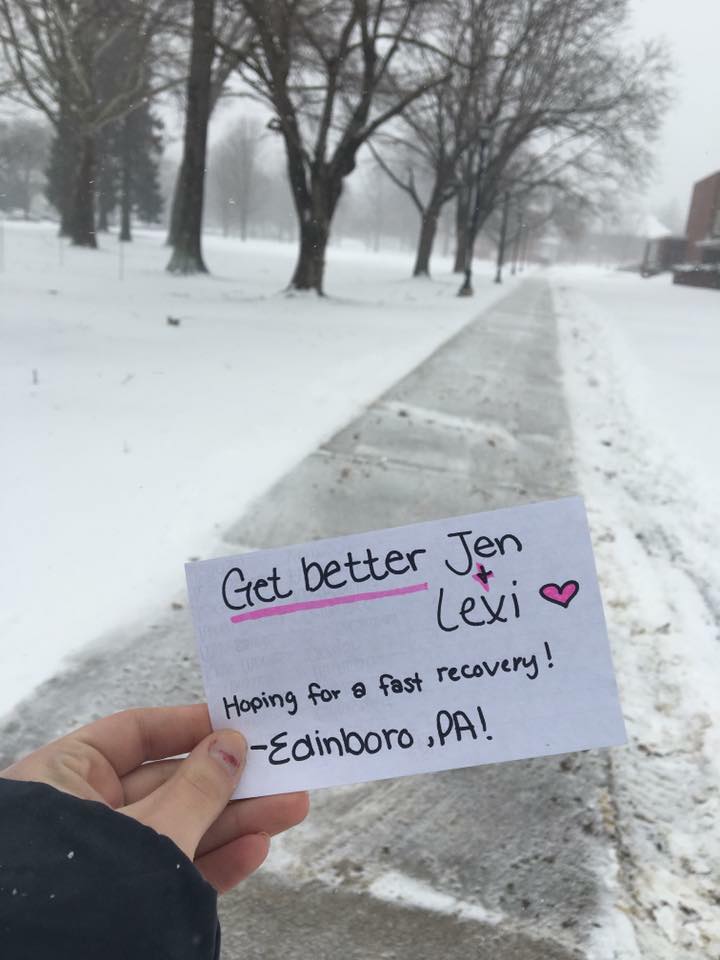 Get better Jen
+
Lexi
Hoping for a fast recovery!
-Edinboro, PA!